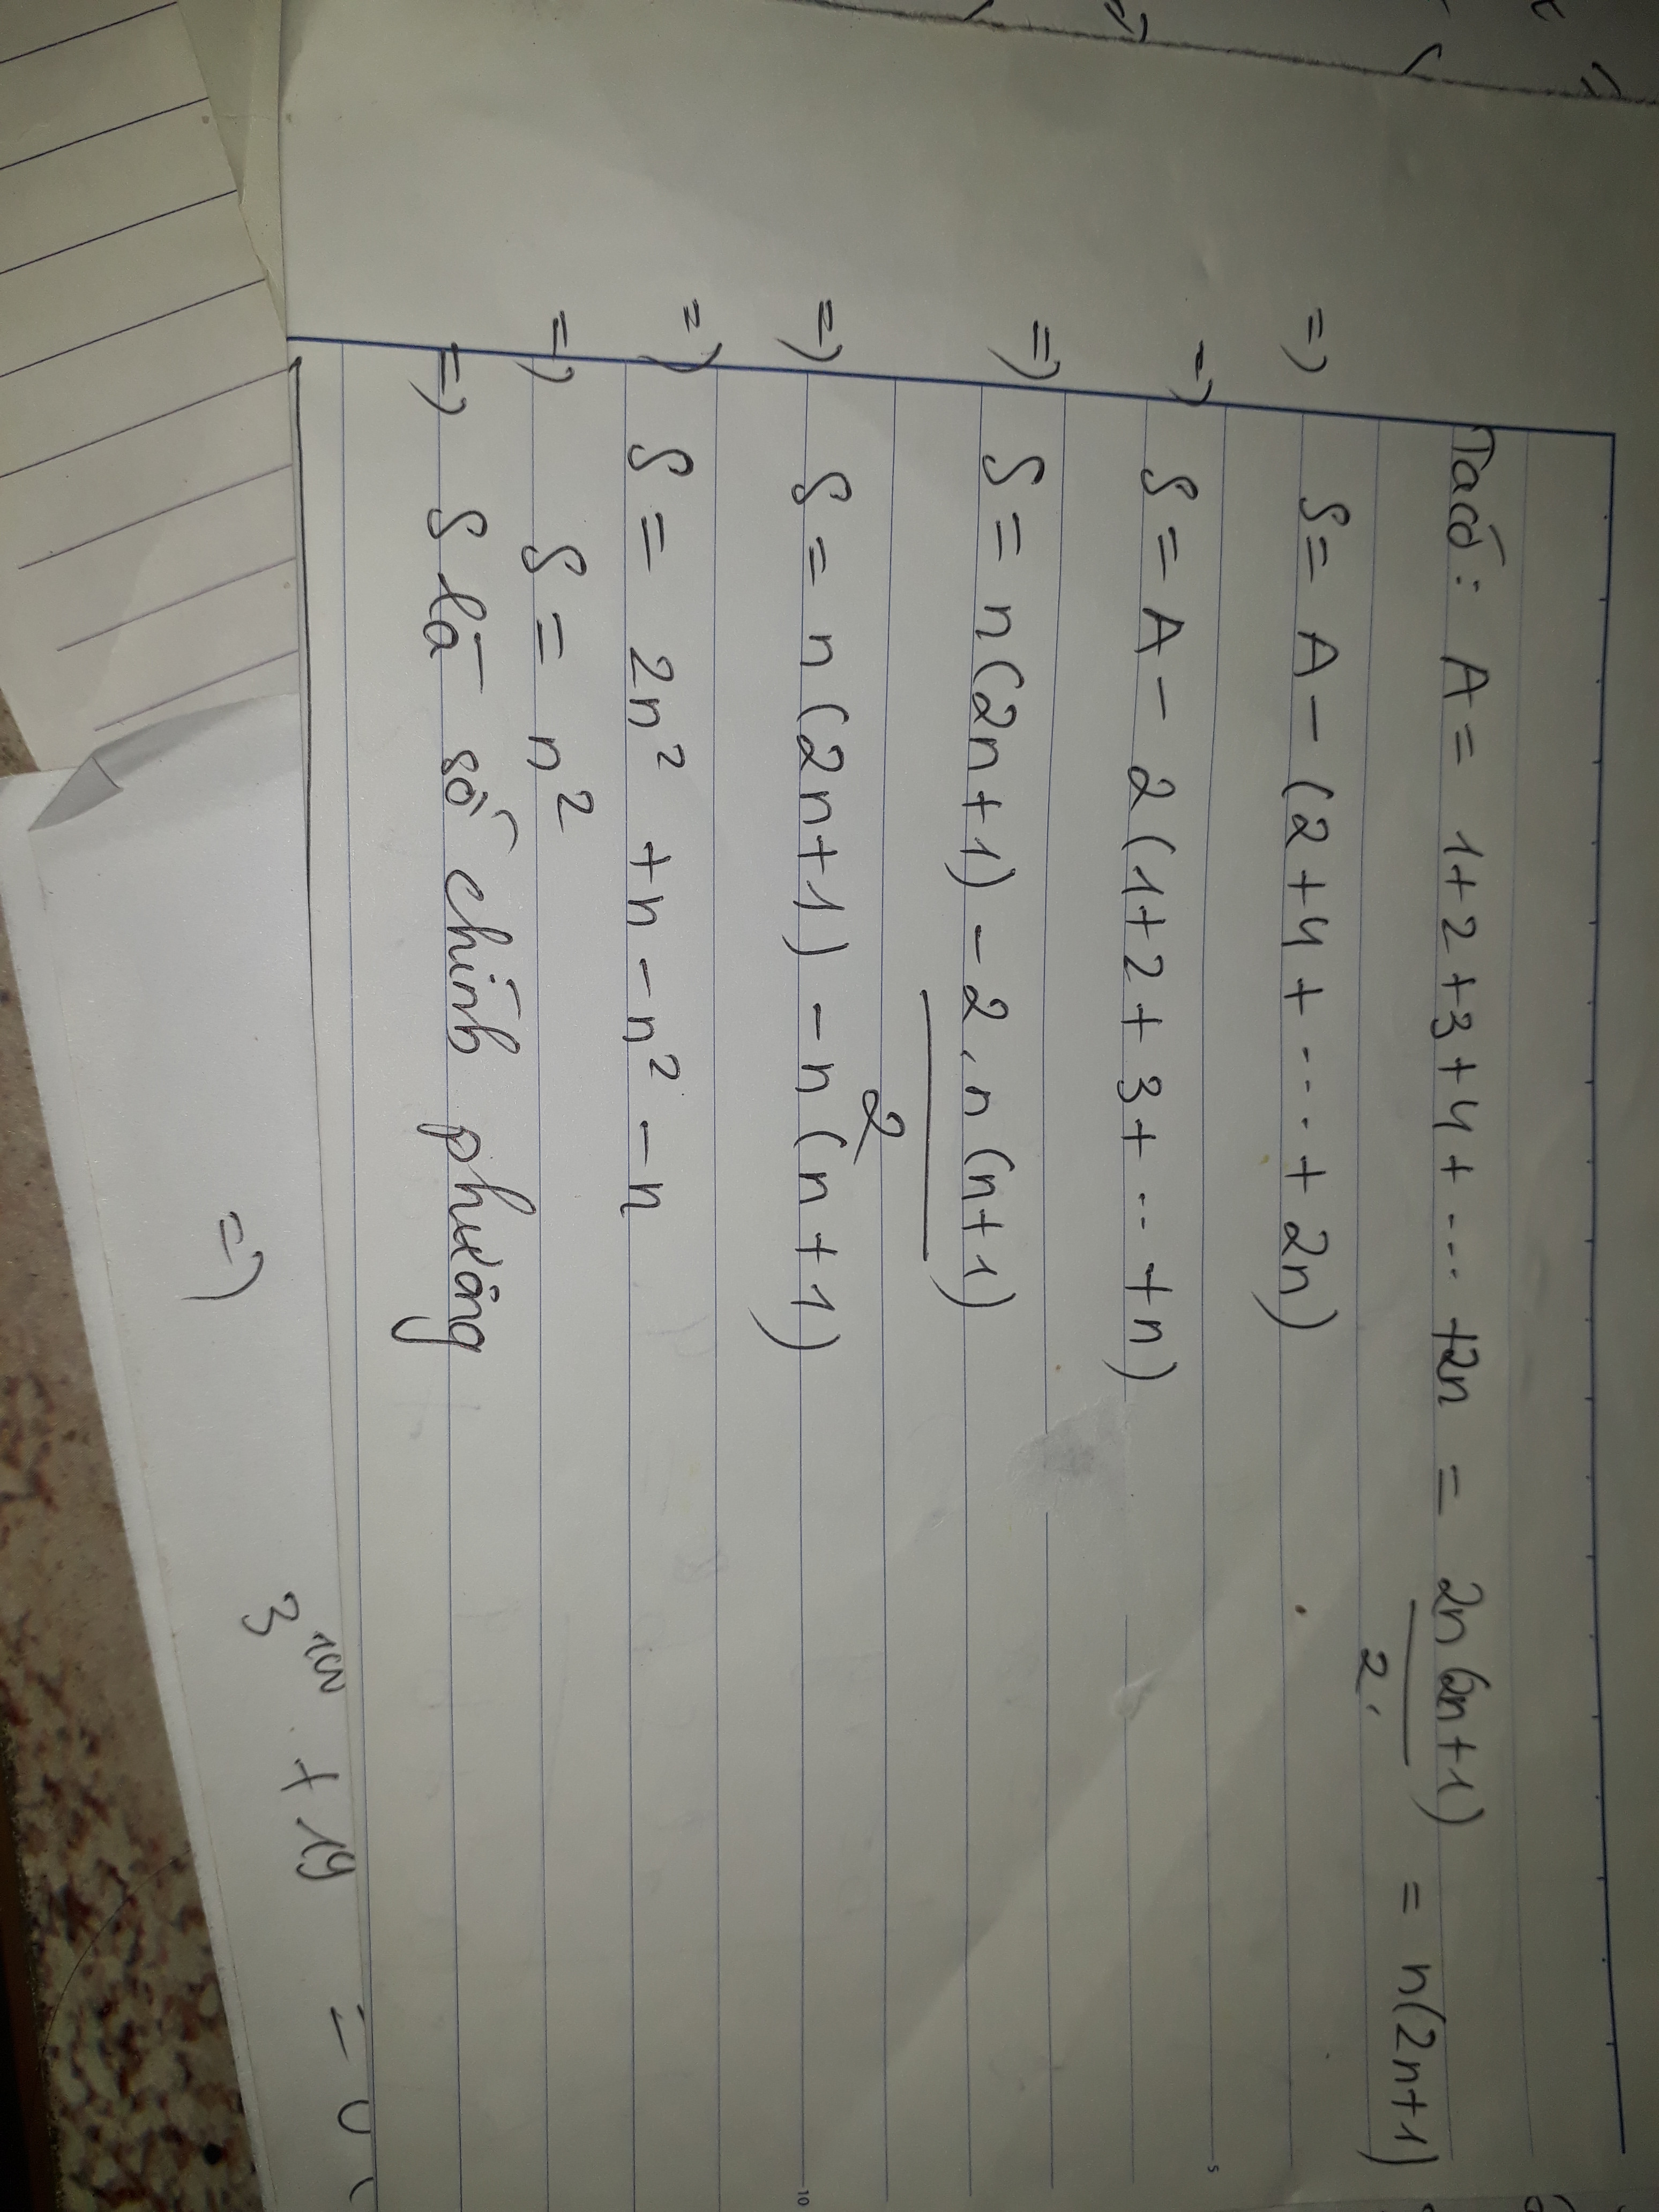 Ta có: A = 1+2+3+4+...+2n = 2n(2n+1)/2 = n(2n+1)
=) S = A - (2+4+...+2n)
=) S = A - 2(1+2+3+...+n)
=) S = n(2n+1) - 2.n(n+1)/2
=) S = n(2n+1) - n(n+1)
=) S = 2n² +n - n² - n
=) S = n²
=) S là số chính phương
=) 3¹⁰⁰ + 19
5
10